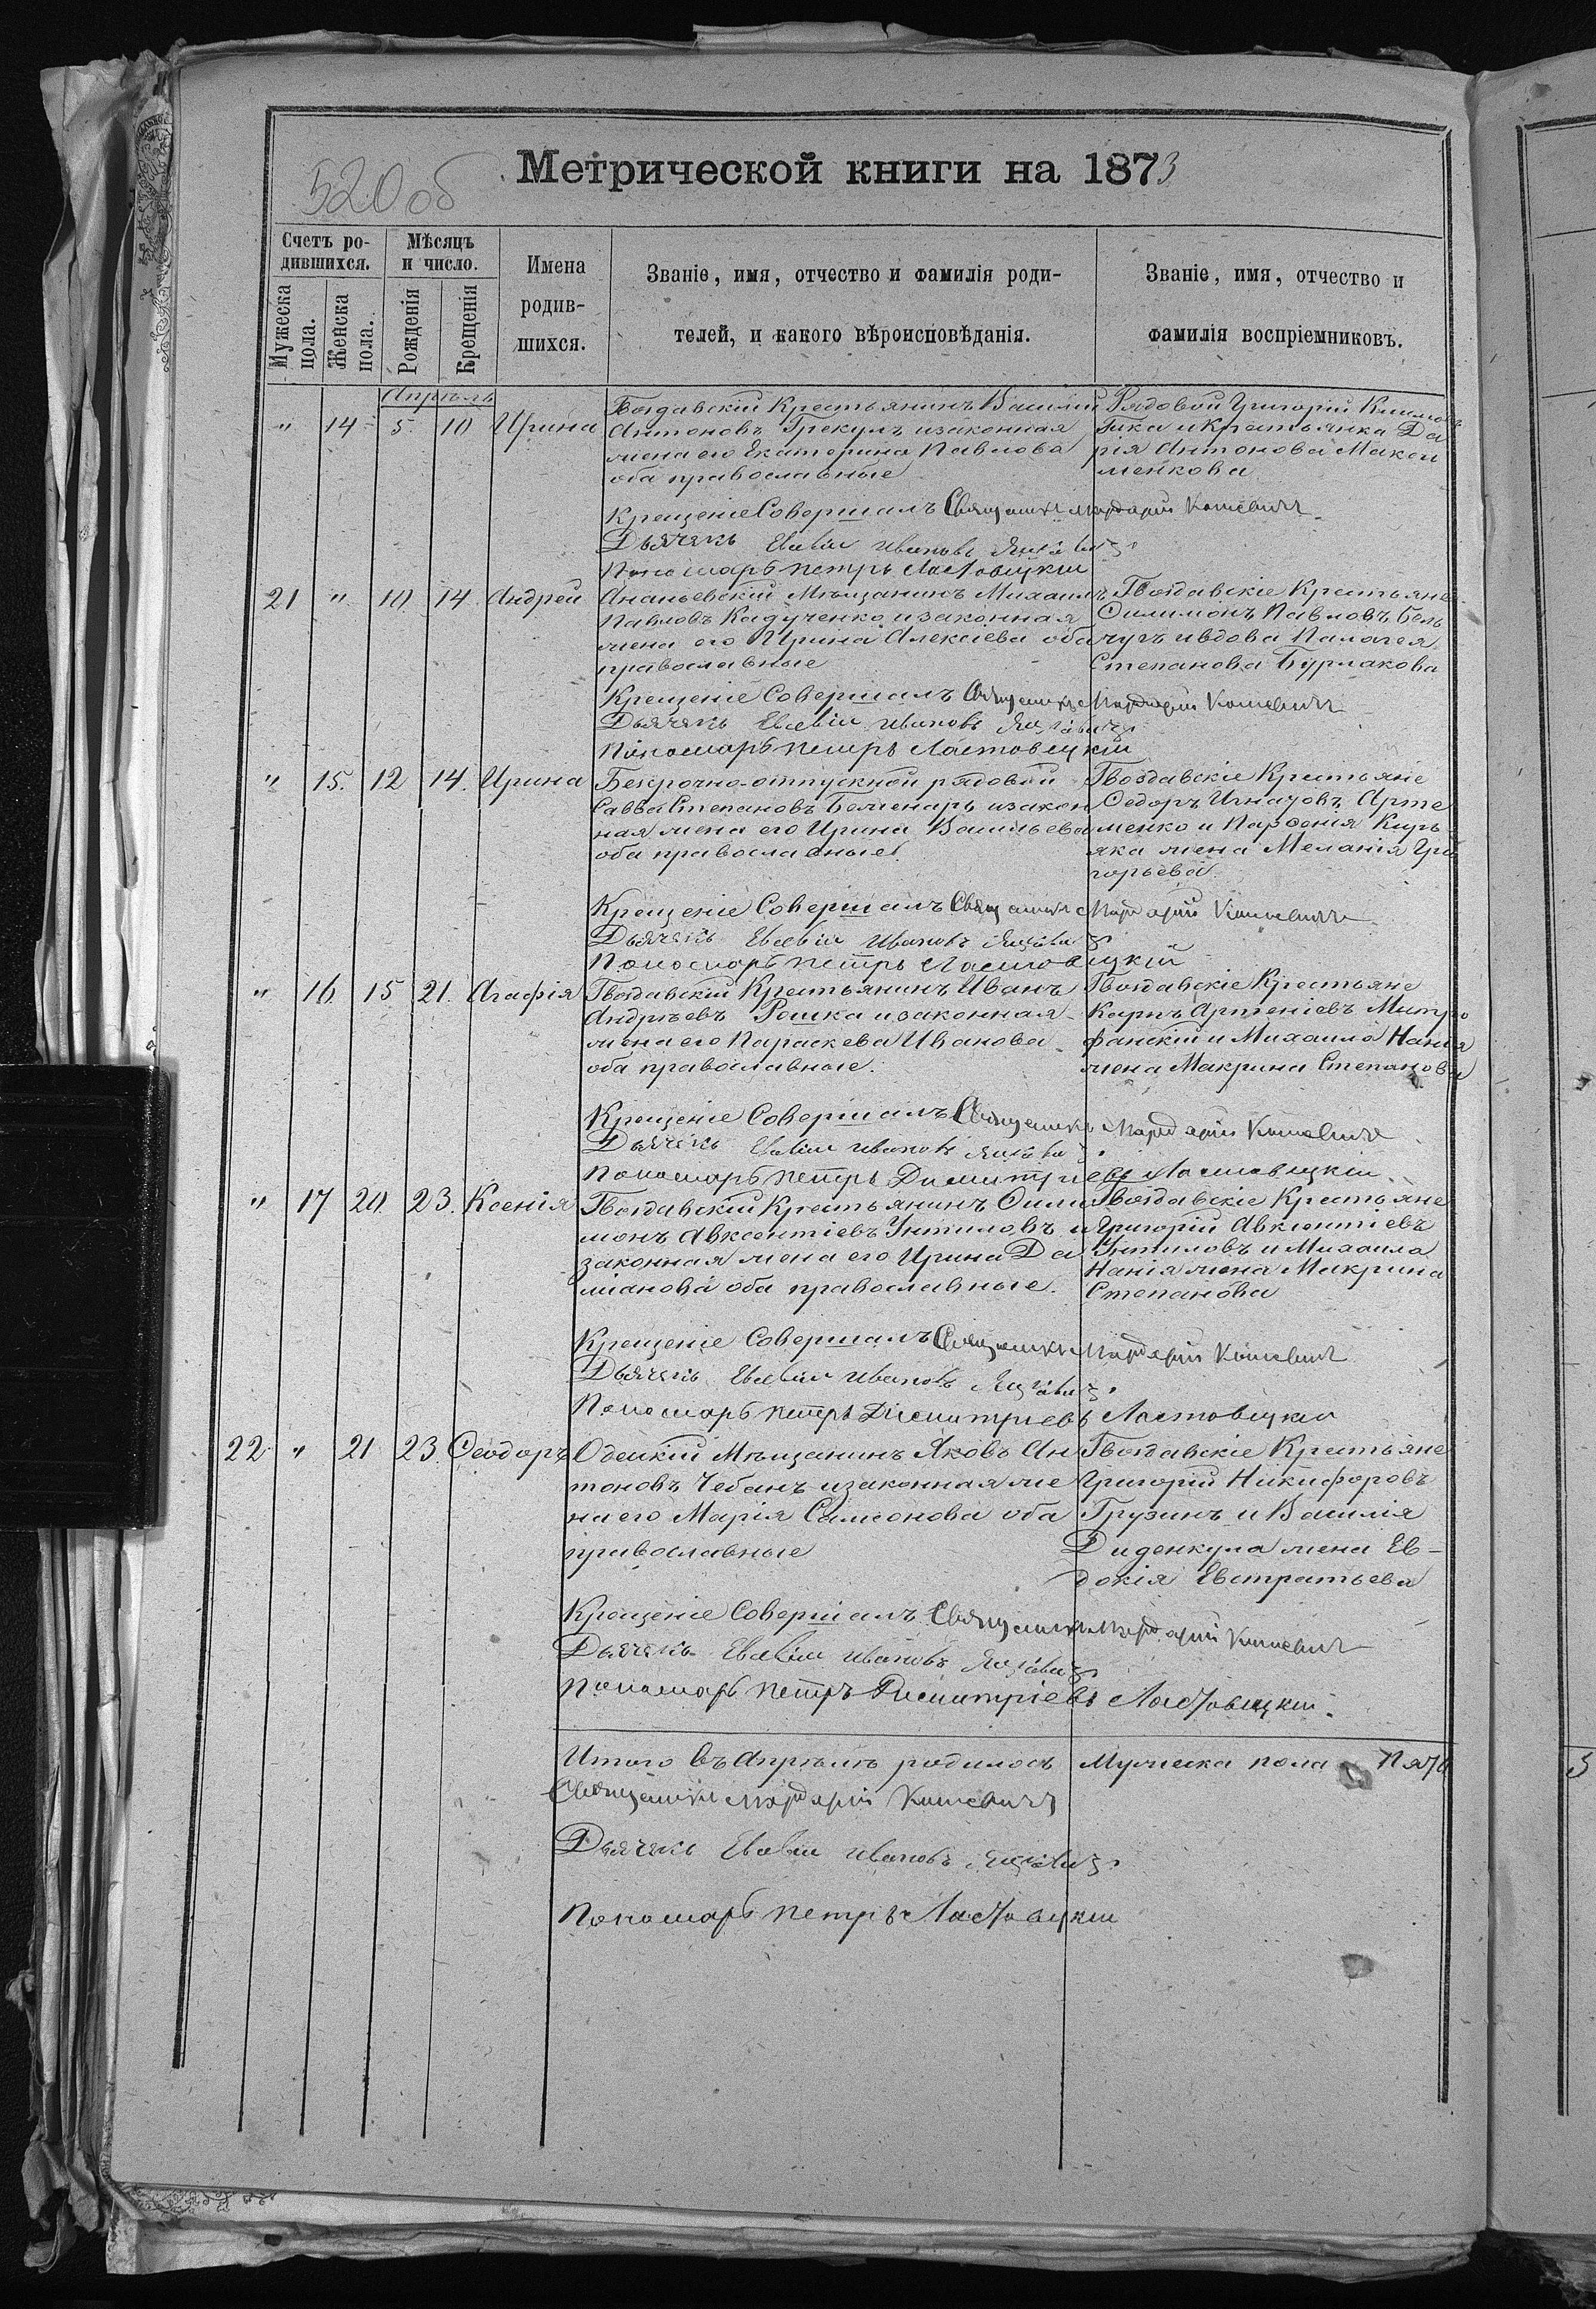 520 об
Метрической книги на 1873
Счетъ ро-
дившихся.
Мужеска
пола.
Женска
пола.
Мѣсяцъ
и число.
Рожденія
Крещенія
Имена
родив-
шихся.
Званіе, имя, отчество и фамилія роди-
телей, и какого вѣроисповѣданія.
Званіе, имя, отчество и
фамилія воспріемниковъ.
Апрѣль
" 14 5. 10 Ирина
Гвоздавскій Крестьянинъ Василій
Антоновъ Грекулъ и законная
жена его Екатерина Павлова
оба православные
Рядовой Григорій Климовъ
Гика и Крестьянка Да
рія Антонова Макси
менкова
Крещеніе Совершалъ Священникъ Мардарій
Дьячекъ Евсевій Ивановъ
Пономарь Петръ Ластовецкій
21 " 10 14 Андрей
Ананьевскій Мѣщанинъ Михаилъ
Павловъ Кадученко и законная
жена его Ирина Алексіева оба
православные
Гвоздавскіе Крестьяне
Филимонъ Павловъ Бель
чугъ и вдова Палагея
Степанова Бурлакова
Крещеніе Совершалъ Священникъ Мардарій
Дьячекъ Евсевій Ивановъ
Пономарь Петръ Ластовецкій
" 15. 12 14. Ирина
Безсрочно-отпускной рядовой
Савва Степановъ и закон
ная жена его Ирина Васильева
оба православные.
Гвоздавскіе Крестьяне
Федоръ Игнатовъ Арте
менко и Парфенія Кирь
яка жена Меланія Гри
горьева.
Крещеніе Совершалъ Священникъ Мардарій
Дьячекъ Евсевій Ивановъ
Пономарь Петръ Ластовецкій
" 16. 15 21. Агафія
Гвоздавскій Крестьянинъ Иванъ
Андреевъ Рошка и законная
жена его Параскева Иванова
оба православные.
Гвоздавскіе Крестьяне
Карпъ Артеніевъ Митро
фанскій и Михаила Нанія
жена Макрина Степанова
Крещеніе Совершалъ Священникъ Мардарій
Дьячекъ Евсевій Ивановъ
Пономарь Петръ Димитріевъ Ластовецкій
" 17 20. 23. Ксенія
Гвоздавскій Крестьянинъ Фили
монъ Авксентіевъ Унтиловъ и
законная жена его Ирина Да
міанова оба православные.
Гвоздавскіе Крестьяне
Григорій Авксентіевъ
Унтиловъ и Михаила
Нанія жена Макрина
Степанова
Крещеніе Совершалъ Священникъ Мардарій
Дьячекъ Евсевій Ивановъ
Пономарь Петръ Димитріевъ Ластовецкій
22 " 21 23. Феодоръ
Одескій Мѣщанинъ Яковъ Ан
тоновъ Чебанъ и законная же
на его Марія Самсонова оба
православные
Гвоздавскіе Крестьяне
Григорій Никифоровъ
Грузинъ и Василія
Диденкула жена Ев-
докія Евстратьева
Крещеніе Совершалъ Священникъ Мардарій
Дьячекъ Евсевій Ивановъ
Пономарь Петръ Димитріевъ Ластовецкій.
Итого въ Апрѣлѣ родилось Мужеска пола Пять
Священникъ Мардарій
Дьячекъ Евсевій Ивановъ
Пономарь Петръ Ластовецкій